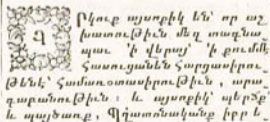 Երկուք այսոքիկ են՝ որ աշ
խատութիւն մեզ տագնա
պաւ ՚ի վերայ՝ ՚ի քումմէ
հասուցանեն հարցասիրու
թենէ՝ համառօտասիրութիւն , արա
գաբանութիւն : և այսոքիկ՝ պերճք
և պայծառք , Պղատոնականք իբր և